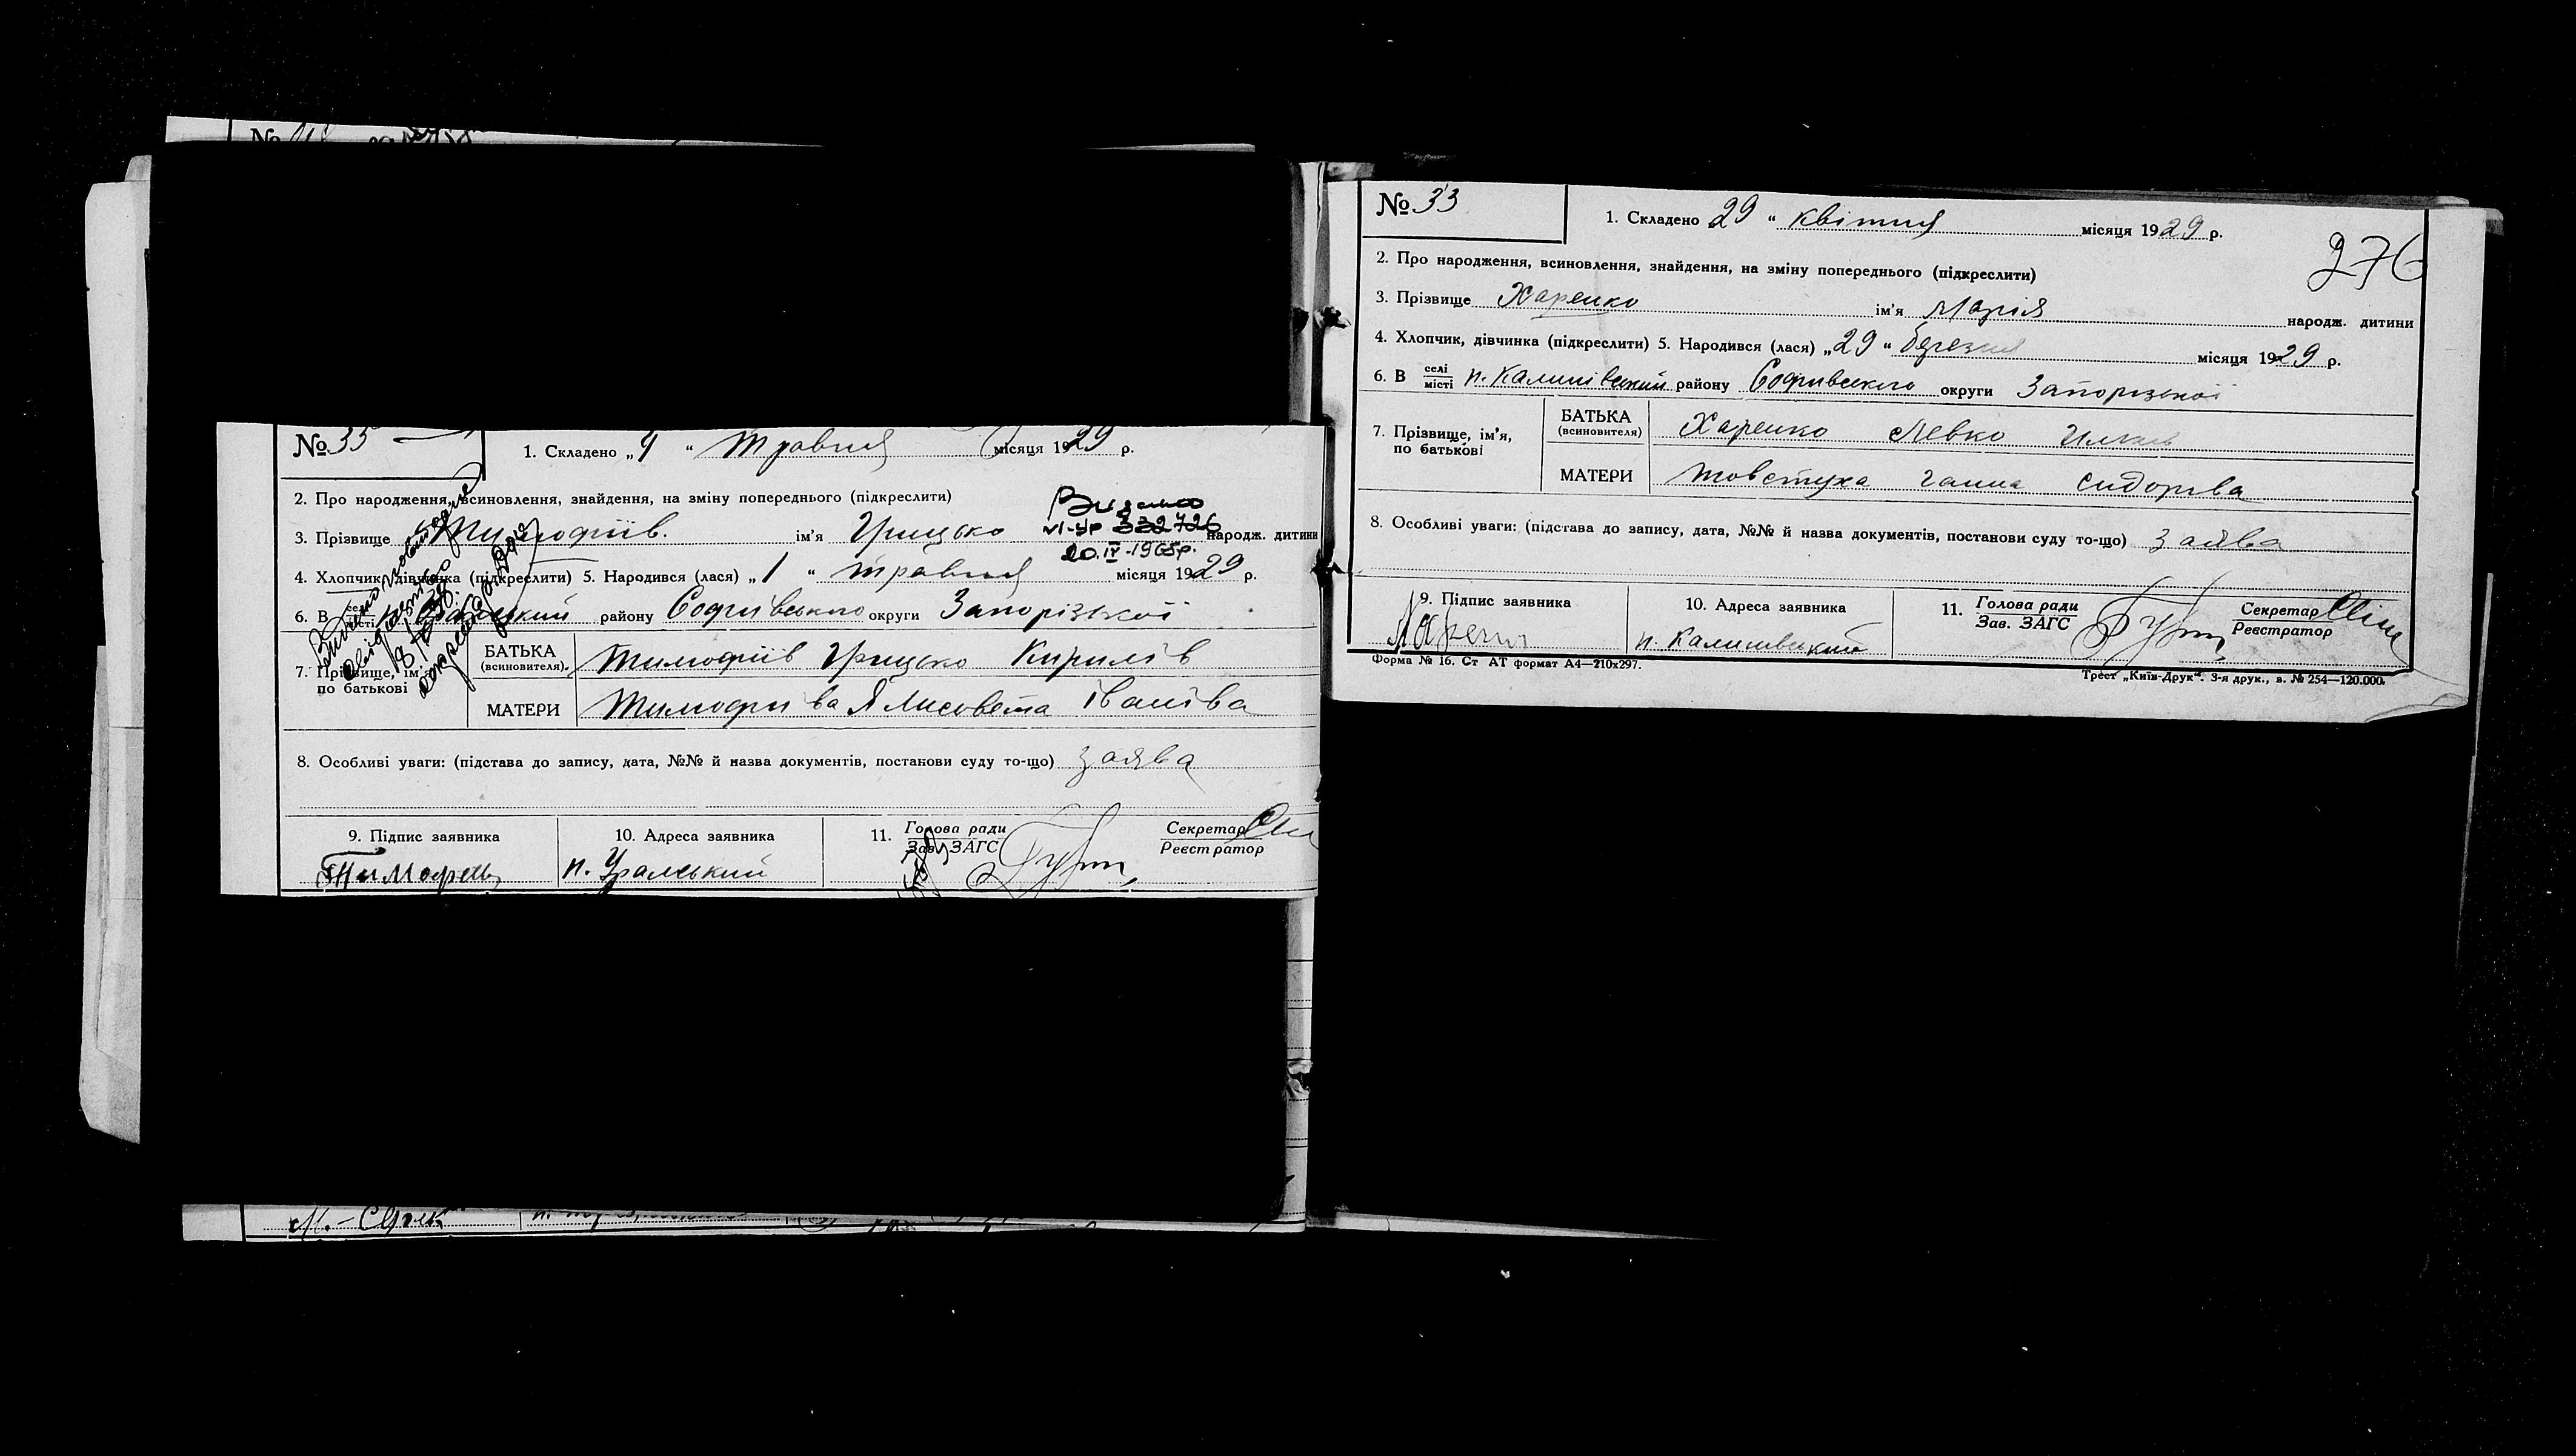 № 35
1. Складено „4 “ Травня місяця 1929 р.
2. Про народження, всиновлення, знайдення, на зміну попереднього (підкреслити)
Видано
VI-УР 332726
20.IV-1965р.
3. Прізвище Тимофіїв. ім'я Грицько народж. дитини
4. Хлопчик, дівчинка (підкреслити) 5. Народився (лася) „1 “ травня місяця 1929 р.
6. В селі місті району Софиівського округи Запорізької
7. Прізвище, ім'я, по батькові
БАТЬКА (всиновителя) Тимофіїв Грицько Кирилів
МАТЕРИ Тимофиїва Ялисовета Іванівa
8. Особливі уваги: (підстава до запису, дата, №№ й назва документів, постанови суду то-що) заява
9. Підпис заявника
10. Адреса заявника
11. Голова ради Зав. ЗАГС
Секретар Реєстратор
п. Уральський
№ 33
1. Складено 29 “ квітня місяця 1929 р.
276
2. Про народження, всиновлення, знайдення, на зміну попереднього (підкреслити)
3. Прізвище Харенко ім'я Марія народж. дитини
4. Хлопчик, дівчинка (підкреслити) 5. Народився (лася) „29 “ березня місяця 1929 р.
6. В селі місті п. Калинівський району Софивського округи Запорізької
7. Прізвище, ім'я, по батькові
БАТЬКА (всиновителя) Харенко Левко
МАТЕРИ Товстуха Ганна Сидорива
8. Особливі уваги: (підстава до запису, дата, №№ й назва документів, постанови суду то-що) заява
9. Підпис заявника
10. Адреса заявника
11. Голова ради Зав. ЗАГС
Секретар Реєстратор
п. Калинивський
Форма № 16. Ст АТ формат А4—210х297.
Трест „Київ-Друк“. 3-я друк., з. № 254—120.000.